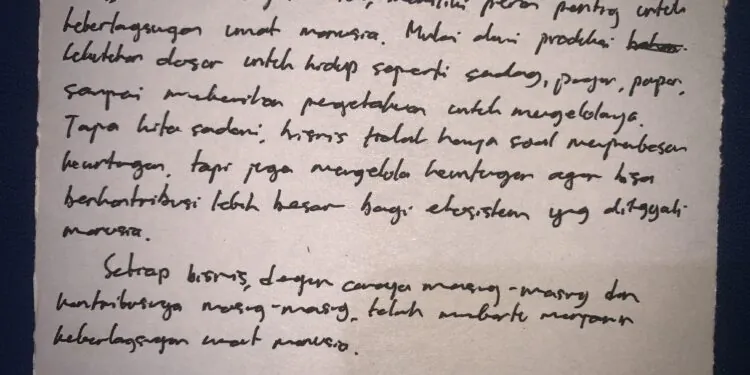 memiliki peran penting untuk
keberlagsugan umat manusia. Mulai dari produksi
kebutuhan dasar untuk hidup seperti sadag, pagar, papar,
sampai memberikan pengetahuan untuk mengelolanya.
Tapa kita sadari, bisnis tidak hanya soal memperbesar
keuntugan, tapi juga mengelola keuntugan agar bisa
berkontribusi lebih besar bagi ekosistem yng ditiggali
manusia.
Setiap bisnis, dengan caranya masig-masig dan
kontribusinya masig-masig, telah membantu menjamin
keberlagsugan umat manusia.